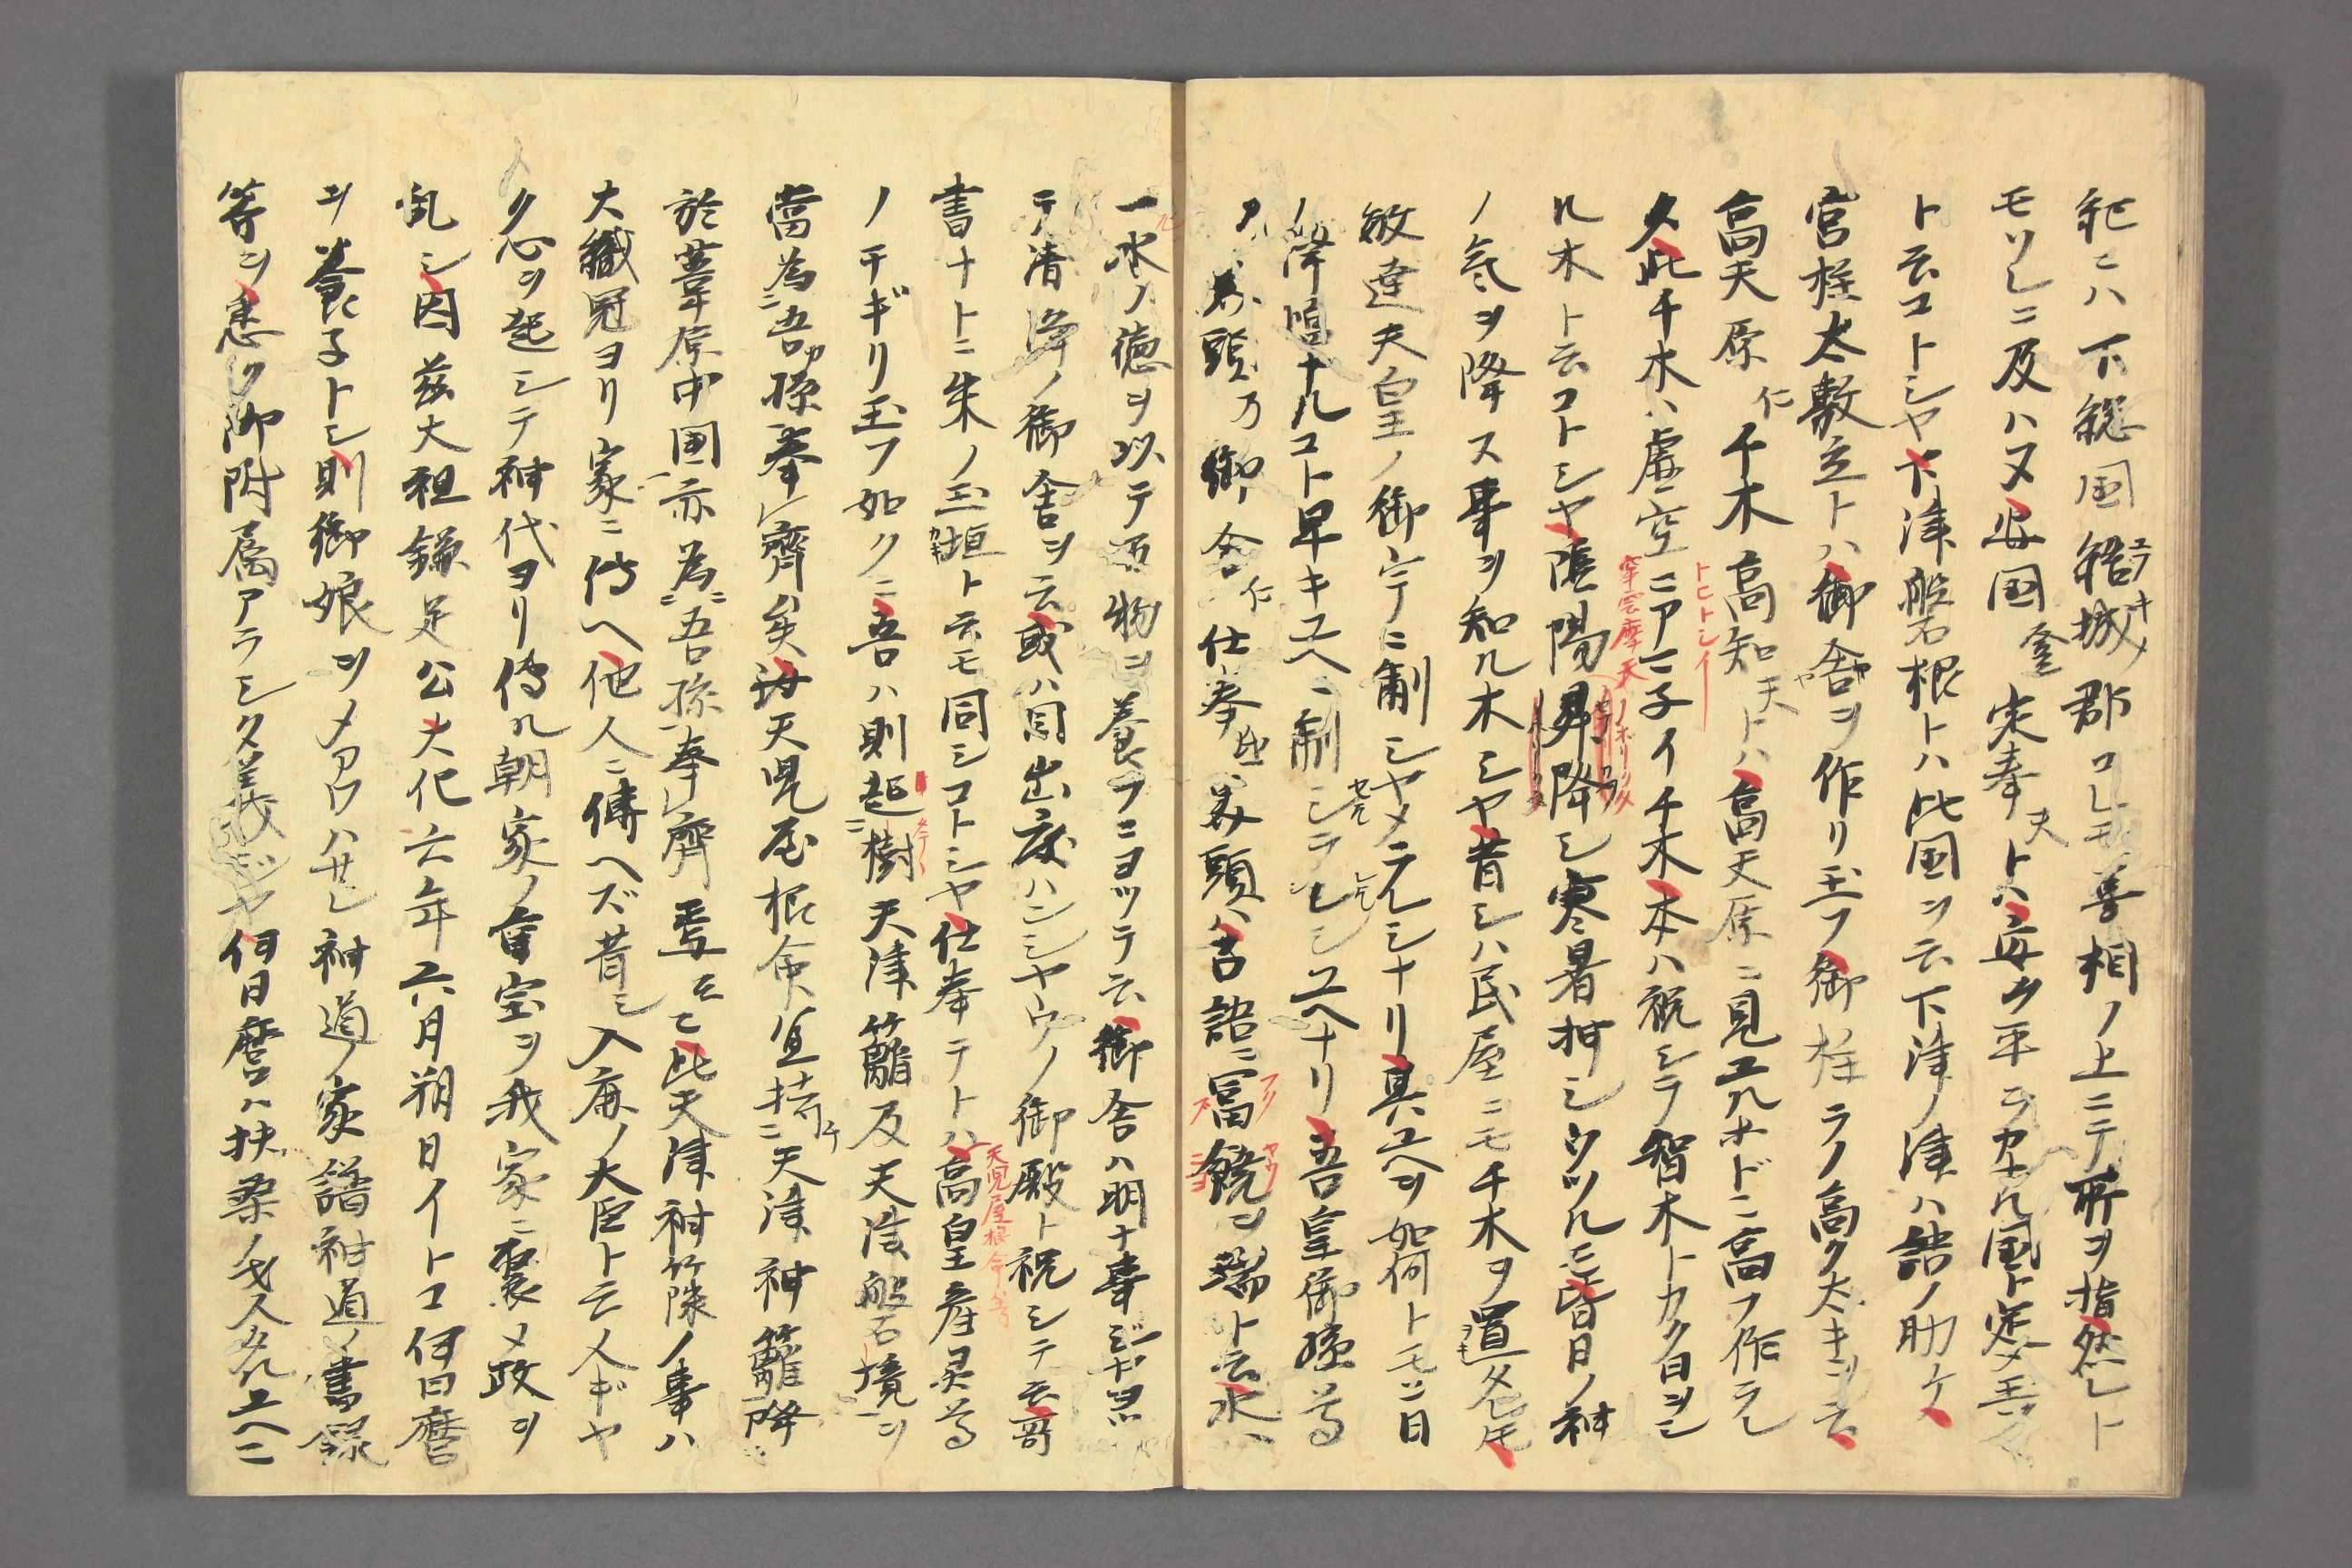 ニハ下総国結城郡コレモ善相ノ上ニテ所ヲ指
モソレニ及ハヌ安国定奉トハ安ク平ラカナル国ト定メ玉
ト云コトシヤ下津磐根トハ此国ヲ云下津ノ津ハ語ノ助ケ
宮柱太敷立トハ御舎ヲ作リ玉フ御柱ラノ高ク太キヲ云
高天原仁千木高知天トハ高天原ニ見エルホドニ高フ作ラ
又此千木ハ虚空ニアマ子イ千木本ハ祝シテ智木トカク日シ
ル木ト云コトシヤ陰陽昇降シ寒暑押シウツル昔日ノ神
ノ気ヲ降ス事ヲ知ル木シヤ昔シハ民屋ニモ千木ヲ置タ
敏達天皇ノ御宇ニ制シヤメラレシナリ其ユヘヲ如何トモニ日
ノ降臨ナルコト早キユヘ制シラレシユヘナリ吾皇御孫尊
乃美頭乃御舎仁仕奉 美頭ハ古語ニ富饒ヲ瑞ト云水ハ
一水ノ徳ヲ以テ万物ヲ養フニヨツテ云御舎ハ明ナ事ジヤ
テ清浄ノ御舎ヲ云或ハ同出度ハンシヤウノ御殿ト祝シテ云哥
書ナトニ朱ノ玉垣ト云モ同シコトシヤ仕奉テトハ高皇産灵尊
ノチギリ玉フ如クニ吾ハ則起樹天津籬及天津磐境ヲ
當為吾孫奉齊矣汝天児屋根命宜持天津神籬降
於葦原中国亦為吾孫奉齊焉云云此天津神籬ノ事ハ
大織冠ヨリ家ニ傳ヘ他人ニ傳ヘズ昔シ入鹿ノ大臣ト云人ギヤ
ク心ヲ起シテ神代ヨリ傳ル朝家ノ重宝ヲ我家ニ襲メ政ヲ
乱シ因茲大祖鎌足公大化六年六月朔日イトコ何日麿
ヲ養子トシ則御娘ヲメアワハサレ神道ノ家譜神道ノ書録
等ヲ悉ク御附属アラシタ義ジヤ何日麿ハ扶桑ノ人タルユヘニ
天児屋根命等